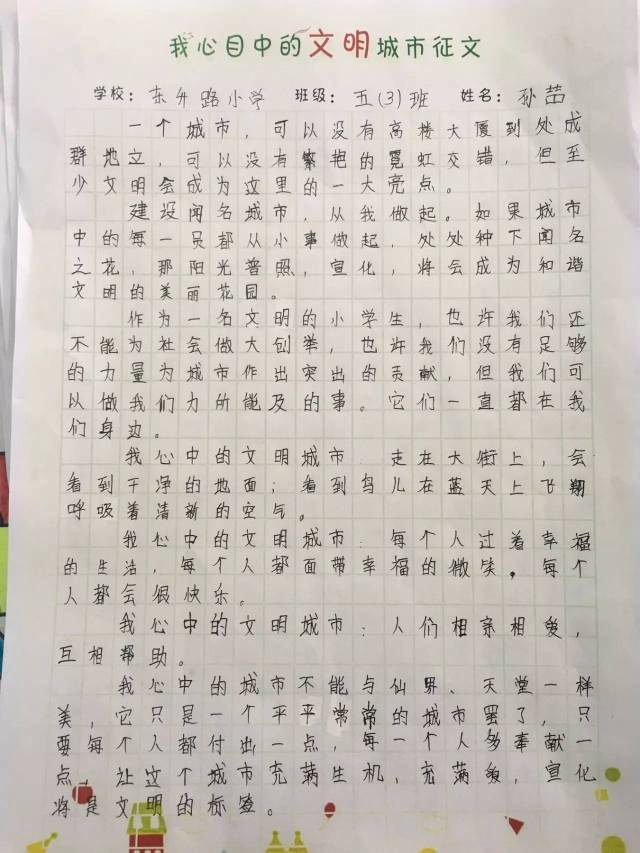 我心目中的文明城市征文
学校：东升路小学 班级：五(3)班 姓名：孙茁
一个城市，可以没有高楼大厦到处成
群地立，可以没有繁艳的霓虹交错，但至
少文明会成为这里的一大亮点。
建设闻名城市，从我做起。如果城市
中的每一员都从小事做起，处处种下闻名
之花，那阳光普照，宣化，将会成为和谐
文明的美丽花园。
作为一名文明的小学生，也许我们还
不能为社会做大创举，也许我们没有足够
的力量为城市作出突出的贡献，但我们可
以做我们力所能及的事。它们一直都在我
们身边。
我心中的文明城市：走在大街上，会
看到干净的地面；看到鸟儿在蓝天上飞翔
呼吸着清新的空气。
我心中的文明城市：每个人过着幸福
的生活，每个人都面带幸福的微笑，每个
人都会很快乐。
我心中的文明城市：人们相亲相爱，
互相帮助。
我心中的城市不能与仙界、天堂一样
美，它只是一个平平常常的城市罢了，只
要每个人都付出一点，每一个人多奉献一
点，让这个城市充满生机，充满爱，宣化
将是文明的标签。